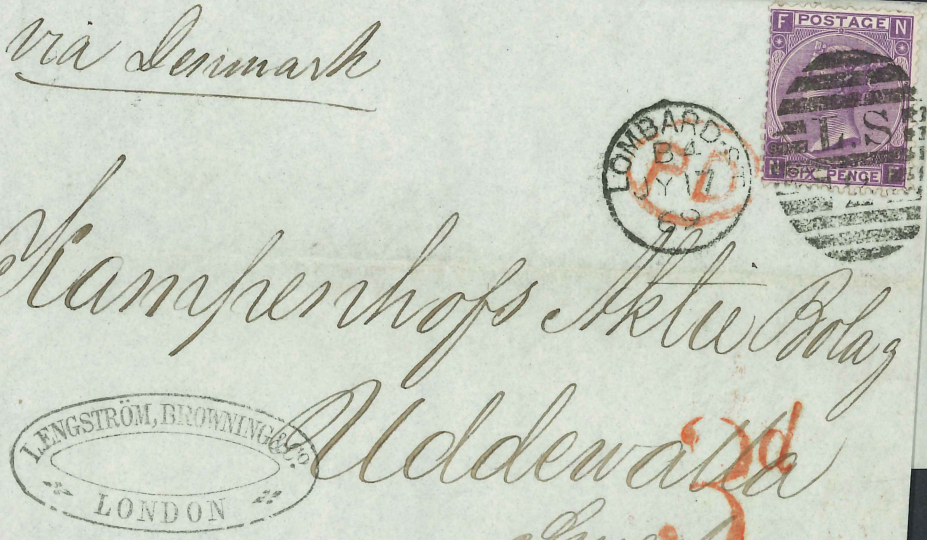 via Denmark
F POSTAGE N
L.S
N SIX PENCE F
LOMBARD ST
B4
JY 17
PD
Kampenhofs Aktie Bolag
Uddewalla
3d
L. ENGSTRÖM, BROWNING & Co.
LONDON